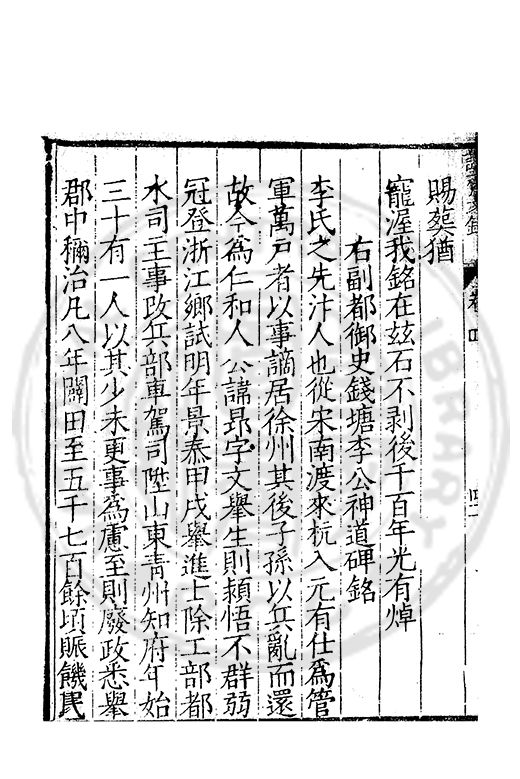 賜葬猶
寵渥我銘在玆石不剥後千百年光有焯
右副都御史錢塘李公神道碑銘
李氏之先汴人也從宋南渡來杭入元有仕爲管
軍萬戸者以事謫居徐州其後子孫以兵亂而還
故今爲仁和人公諱昻字文舉生則頴悟不群弱
冠登浙江鄉試明年景泰甲戌舉進士除工部都
水司主事改兵部車駕司陞山東青州知府年始
三十有一人以其少未更事爲慮至則廢政悉舉
郡中稱治凡八年闢田至五千七百餘頃賑饑民